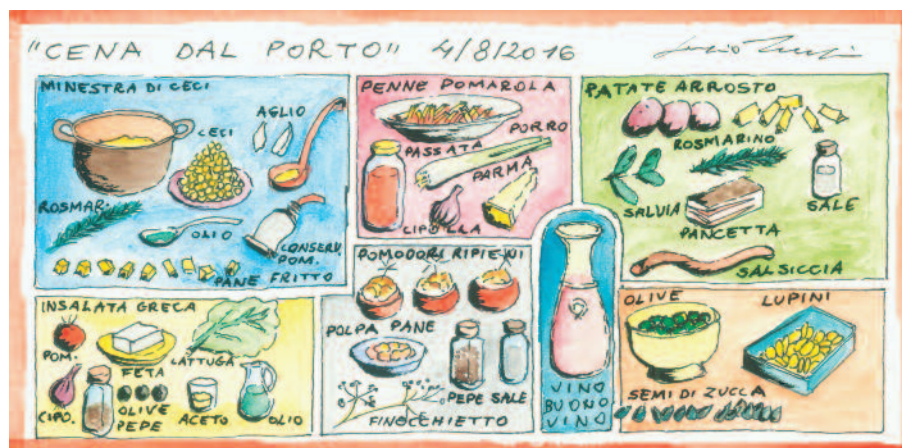 "CENA DAL PORTO" 4/8/2016
MINESTRA DI CECI
AGLIO
CECI
ROSMAR.
OLIO
CONSERV.
POM.
PANE FRITTO
PENNE POMAROLA
PORRO
PASSATA
PARMA
CIPOLLA
PATATE ARROSTO
ROSMARINO
SALVIA
SALE
PANCETTA
SALSICCIA
INSALATA GRECA
POM.
FETA
LATTUGA
CIPO.
OLIVE
PEPE
ACETO
OLIO
POMODORI RIPIENI
POLPA PANE
PEPE SALE
FINOCCHIETTO
VINO
BUONO
VINO
OLIVE
LUPINI
SEMI DI ZUCCA